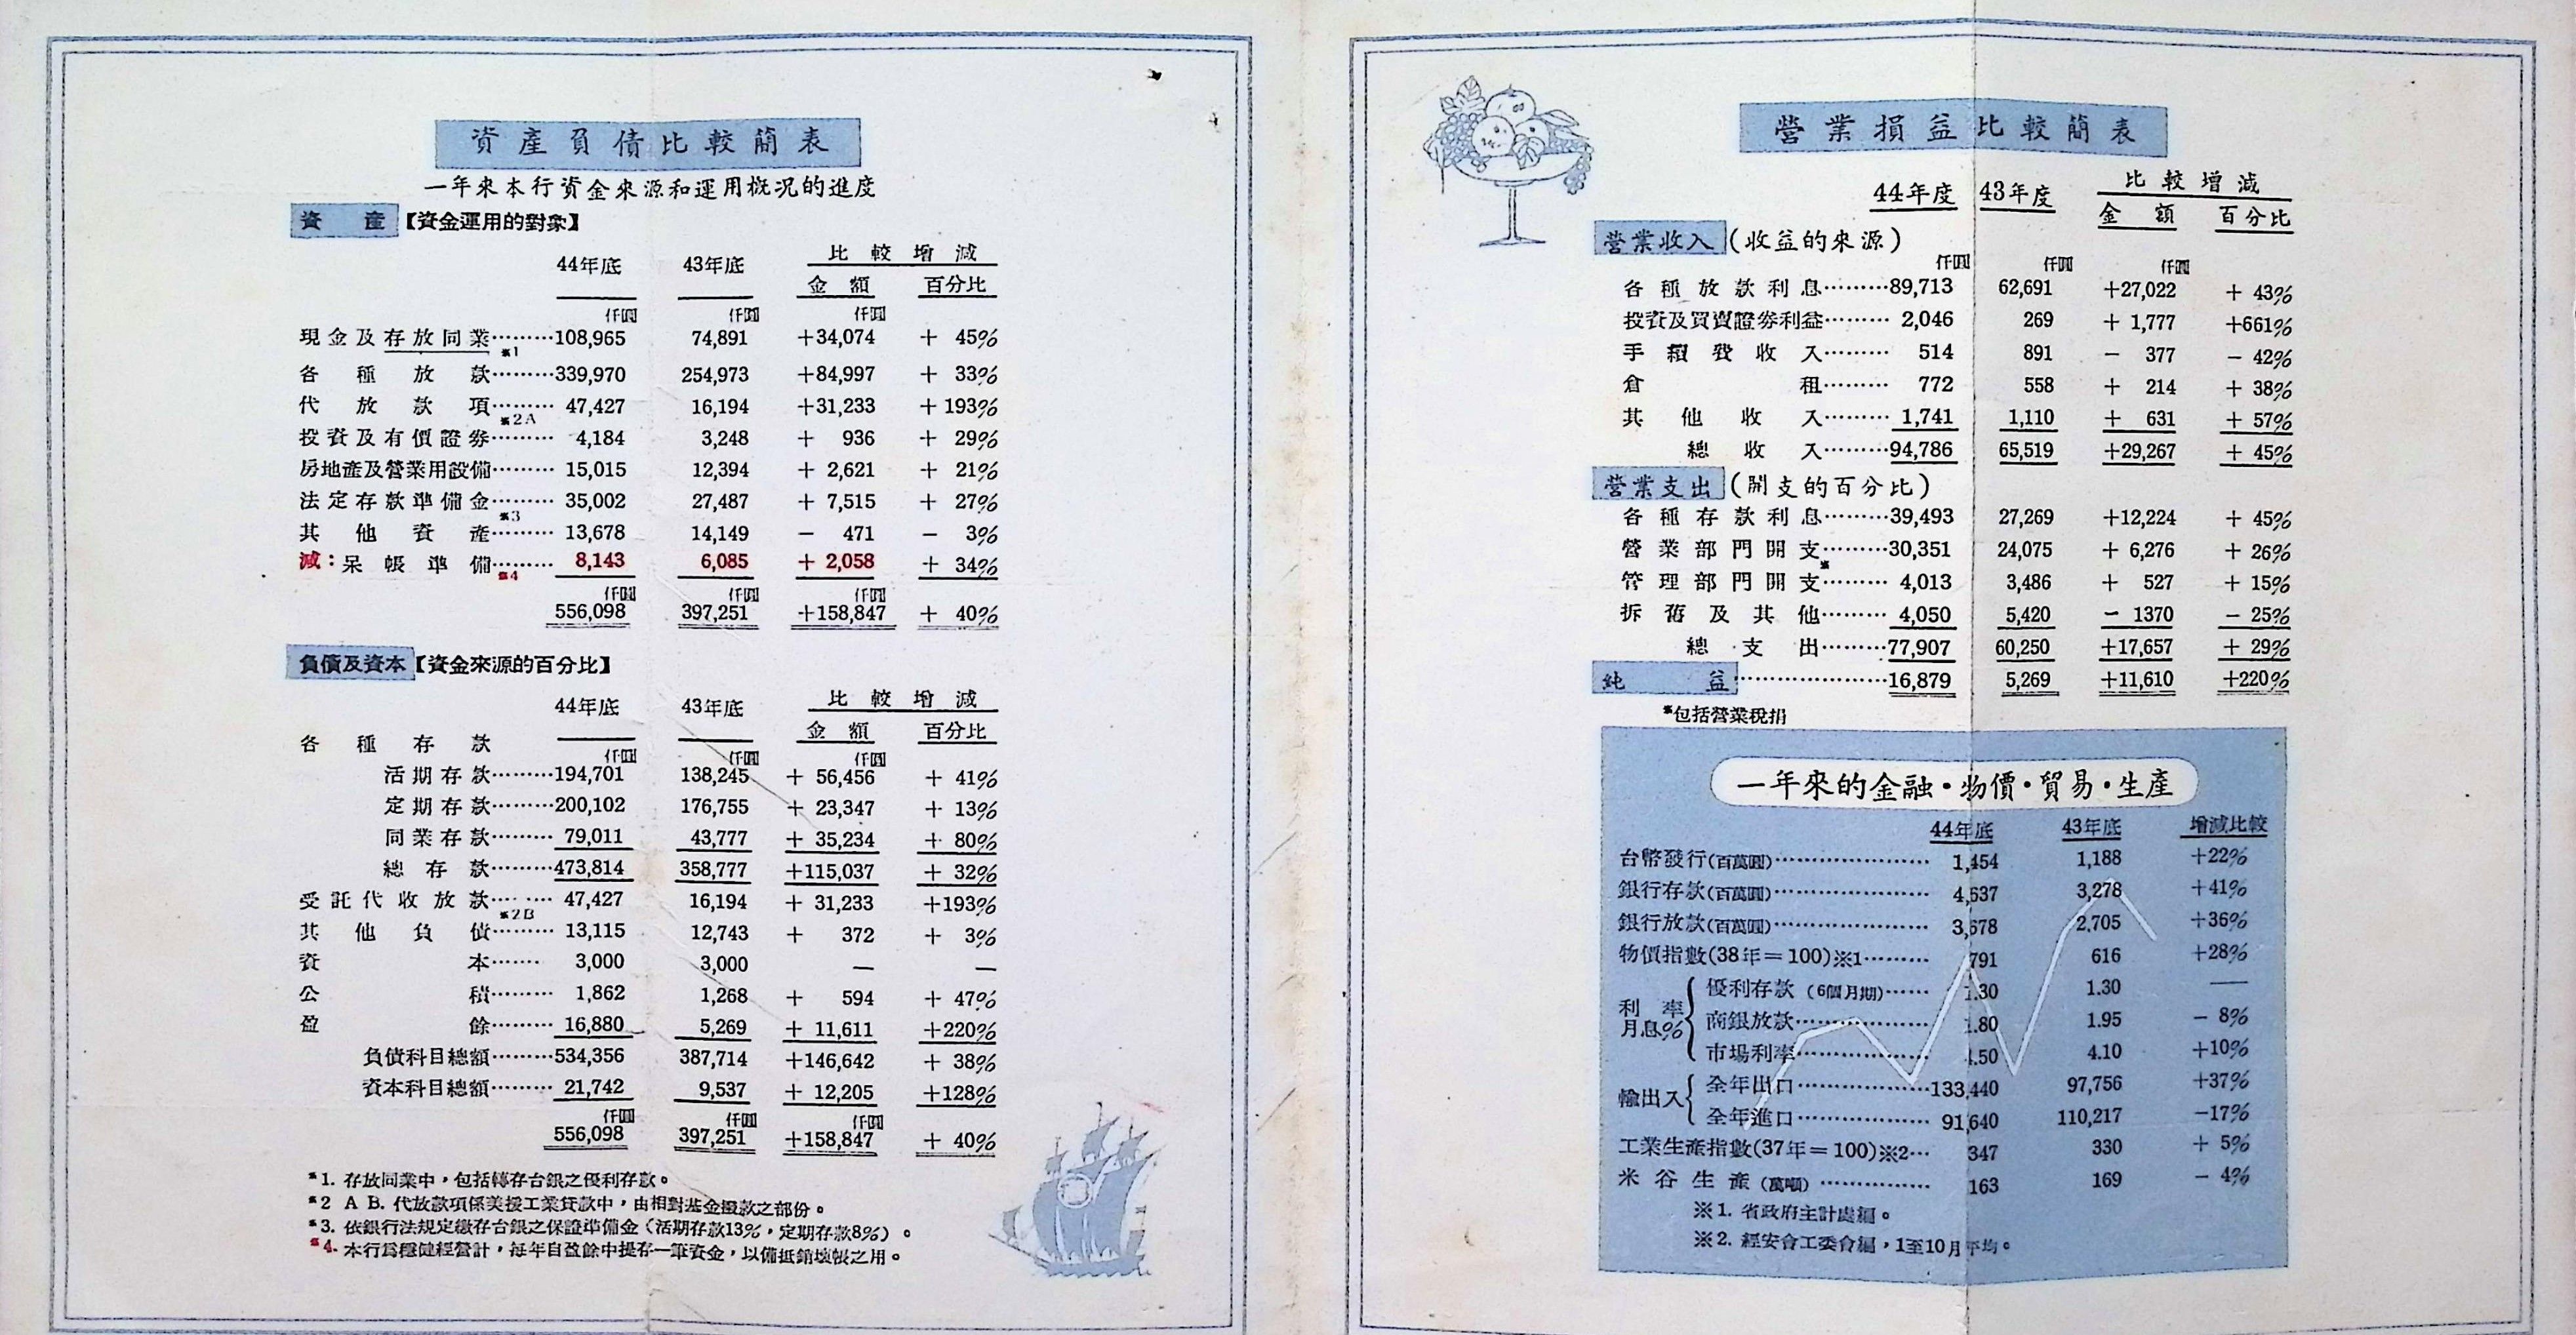 資產負債比較簡表
一年來本行資金來源和運用概況的進度
資產【資金運用的對象】
44年底 43年底 比較增減
金額 百分比
仟圓 仟圓 仟圓
現金及存放同業※1………108,965 74,891 +34,074 + 45%
各種放款………339,970 254,973 +84,997 + 33%
代放款項※2A………47,427 16,194 +31,233 +193%
投資及有價證券………4,184 3,248 + 936 + 29%
房地產及營業用設備………15,015 12,394 + 2,621 + 21%
法定存款準備金※3………35,002 27,487 + 7,515 + 27%
其他資產………13,678 14,149 − 471 − 3%
減:呆帳準備※4………8,143 6,085 + 2,058 + 34%
仟圓 仟圓 仟圓
556,098 397,251 +158,847 + 40%
負債及資本【資金來源的百分比】
44年底 43年底 比較增減
金額 百分比
各種存款
仟圓 仟圓 仟圓
活期存款………194,701 138,245 + 56,456 + 41%
定期存款………200,102 176,755 + 23,347 + 13%
同業存款………79,011 43,777 + 35,234 + 80%
總存款………473,814 358,777 +115,037 + 32%
受託代收放款※2B………47,427 16,194 + 31,233 +193%
其他負債………13,115 12,743 + 372 + 3%
資本………3,000 3,000 — —
公積………1,862 1,268 + 594 + 47%
盈餘………16,880 5,269 + 11,611 +220%
負債科目總額………534,356 387,714 +146,642 + 38%
資本科目總額………21,742 9,537 + 12,205 +128%
仟圓 仟圓 仟圓
556,098 397,251 +158,847 + 40%
※1. 存放同業中,包括轉存台銀之優利存款。
※2 A B. 代放款項係美援工業貸款中,由相對基金撥款之部份。
※3. 依銀行法規定繳存台銀之保證準備金(活期存款13%,定期存款8%)。
※4. 本行為穩健經營計,每年自盈餘中提存一筆資金,以備抵銷壞帳之用。
營業損益比較簡表
44年度 43年度 比較增減
金額 百分比
營業收入(收益的來源)
仟圓 仟圓 仟圓
各種放款利息………89,713 62,691 +27,022 + 43%
投資及買賣證券利益………2,046 269 + 1,777 +661%
手續費收入………514 891 − 377 − 42%
倉租………772 558 + 214 + 38%
其他收入………1,741 1,110 + 631 + 57%
總收入………94,786 65,519 +29,267 + 45%
營業支出(開支的百分比)
各種存款利息………39,493 27,269 +12,224 + 45%
營業部門開支※………30,351 24,075 + 6,276 + 26%
管理部門開支………4,013 3,486 + 527 + 15%
拆舊及其他………4,050 5,420 − 1370 − 25%
總支出………77,907 60,250 +17,657 + 29%
純益………16,879 5,269 +11,610 +220%
※包括營業稅捐
一年來的金融·物價·貿易·生產
44年底 43年底 增減比較
台幣發行(百萬圓)………1,454 1,188 +22%
銀行存款(百萬圓)………4,637 3,278 +41%
銀行放款(百萬圓)………3,678 2,705 +36%
物價指數(38年=100)※1………791 616 +28%
利率月息% 優利存款(6個月期)……1.30 1.30 —
商銀放款………1.80 1.95 − 8%
市場利率………4.50 4.10 +10%
輸出入 全年出口………133,440 97,756 +37%
全年進口………91,640 110,217 −17%
工業生產指數(37年=100)※2…347 330 + 5%
米谷生產(萬噸)………163 169 − 4%
※1. 省政府主計處編。
※2. 經安會工委會編,1至10月平均。